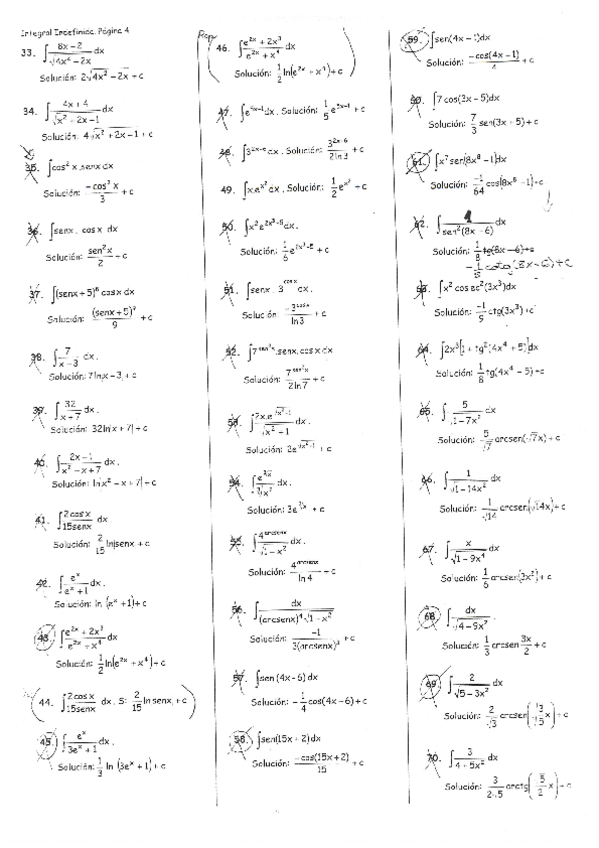 Integral Indefinida. Página 4
33. ∫ (8x − 2)/√(4x² − 2x) dx
Solución: 2√(4x² − 2x) + c
34. ∫ (4x + 4)/√(x² − 2x − 1) dx
Solución: 4√(x² + 2x − 1) + c
35. ∫cos² x.senx dx
Solución: (−cos³ x)/3 + c
36. ∫senx . cosx dx
Solución: (sen²x)/2 + c
37. ∫(senx + 5)⁸ cosx dx
Solución: (senx + 5)⁹/9 + c
38. ∫ 7/(x − 3) dx .
Solución: 7ln|x − 3| + c
39. ∫ 32/(x + 7) dx .
Solución: 32ln|x + 7| + c
40. ∫ (2x − 1)/(x² − x + 7) dx .
Solución: ln|x² − x + 7| + c
41. ∫ 2cosx/15senx dx
Solución: 2/15 ln|senx + c
42. ∫ eˣ/(eˣ + 1) dx .
Solución: ln (eˣ + 1) + c
43. ∫ (e²ˣ + 2x³)/(e²ˣ + x⁴) dx
Solución: 1/2 ln(e²ˣ + x⁴) + c
44. ∫ 2cosx/15senx dx . S: 2/15 ln|senx| + c
45. ∫ eˣ/(3eˣ + 1) dx .
Solución: 1/3 ln (3eˣ + 1) + c
Rep
46. ∫ (e²ˣ + 2x³)/(e²ˣ + x⁴) dx
Solución: 1/2 ln(e²ˣ + x⁴) + c
47. ∫e^(5x−1)dx . Solución: 1/5 e^(5x−1) + c
48. ∫3^(2x−6) dx . Solución: 3^(2x−6)/(2ln3) + c
49. ∫x.e^(x²) dx . Solución: 1/2 e^(x²) + c
50. ∫x²e^(2x³−5)dx .
Solución: 1/6 e^(2x³−5) + c
51. ∫senx . 3^(cosx) dx .
Solución: −3^(cosx)/ln3 + c
52. ∫7^(sen²x).senx.cosx dx
Solución: 7^(sen²x)/(2ln7) + c
53. ∫ 2x.e^(√(x²−1))/√(x² − 1) dx
Solución: 2e^(√(x²−1)) + c
54. ∫ e^(∛x)/∛x² dx .
Solución: 3e^(∛x) + c
55. ∫ 4^(arcsenx)/√(1 − x²) dx .
Solución: 4^(arcsenx)/ln4 + c
56. ∫ dx/((arcsenx)⁴ √(1 − x²))
Solución: −1/(3(arcsenx)³) + c
57. ∫sen(4x − 6)dx
Solución: −1/4 cos(4x − 6) + c
58. ∫sen(15x + 2)dx
Solución: −cos(15x + 2)/15 + c
59. ∫sen(4x − 1)dx
Solución: −cos(4x − 1)/4 + c
60. ∫7cos(3x − 5)dx
Solución: 7/3 sen(3x − 5) + c
61. ∫x⁷sen(8x⁸ − 1)dx
Solución: −1/64 cos(8x⁸ − 1) + c
62. ∫ 1/sen²(8x − 6) dx
Solución: 1/8 tg(8x − 6) + c
−1/8 cotg(8x − 6) + C
63. ∫x² cosec²(3x³)dx
Solución: −1/9 ctg(3x³) + c
64. ∫2x³[1 + tg²(4x⁴ + 5)]dx
Solución: 1/8 tg(4x⁴ − 5) + c
65. ∫ 5/√(1 − 7x²) dx
Solución: 5/√7 arcsen(√7x) + c
66. ∫ 1/√(1 − 14x²) dx
Solución: 1/√14 arcsen(√14x) + c
67. ∫ x/√(1 − 9x⁴) dx
Solución: 1/6 arcsen(3x²) + c
68. ∫ dx/√(4 − 9x²) .
Solución: 1/3 arcsen 3x/2 + c
69. ∫ 2/√(5 − 3x²) dx
Solución: 2/√3 arcsen(√(3/5) x) + c
70. ∫ 3/(4 + 5x²) dx
Solución: 3/(2√5) arctg(√5/2 x) + c